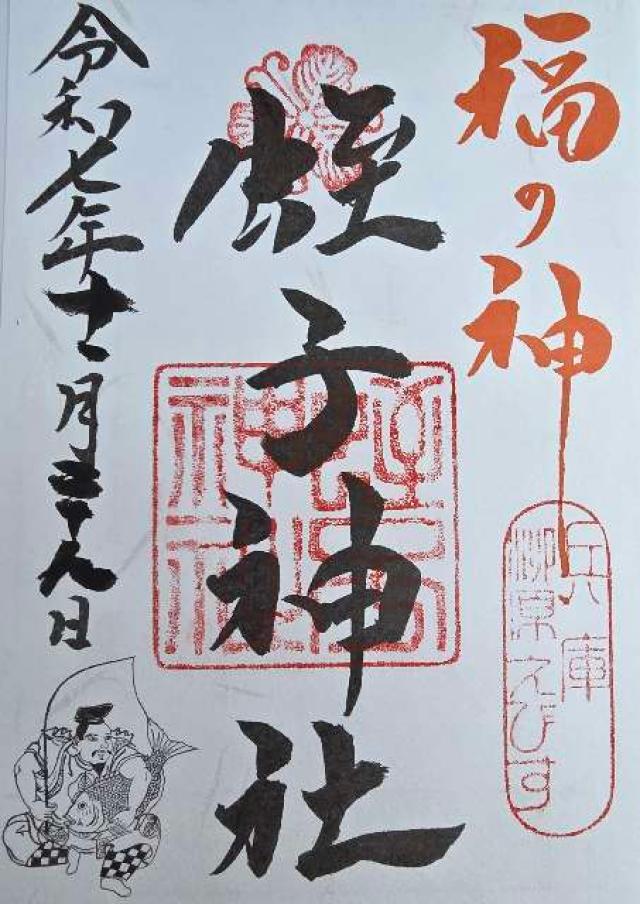 福の神
兵庫
柳原えびす
蛭子神社
蛭子神社
令和七年十一月二十九日